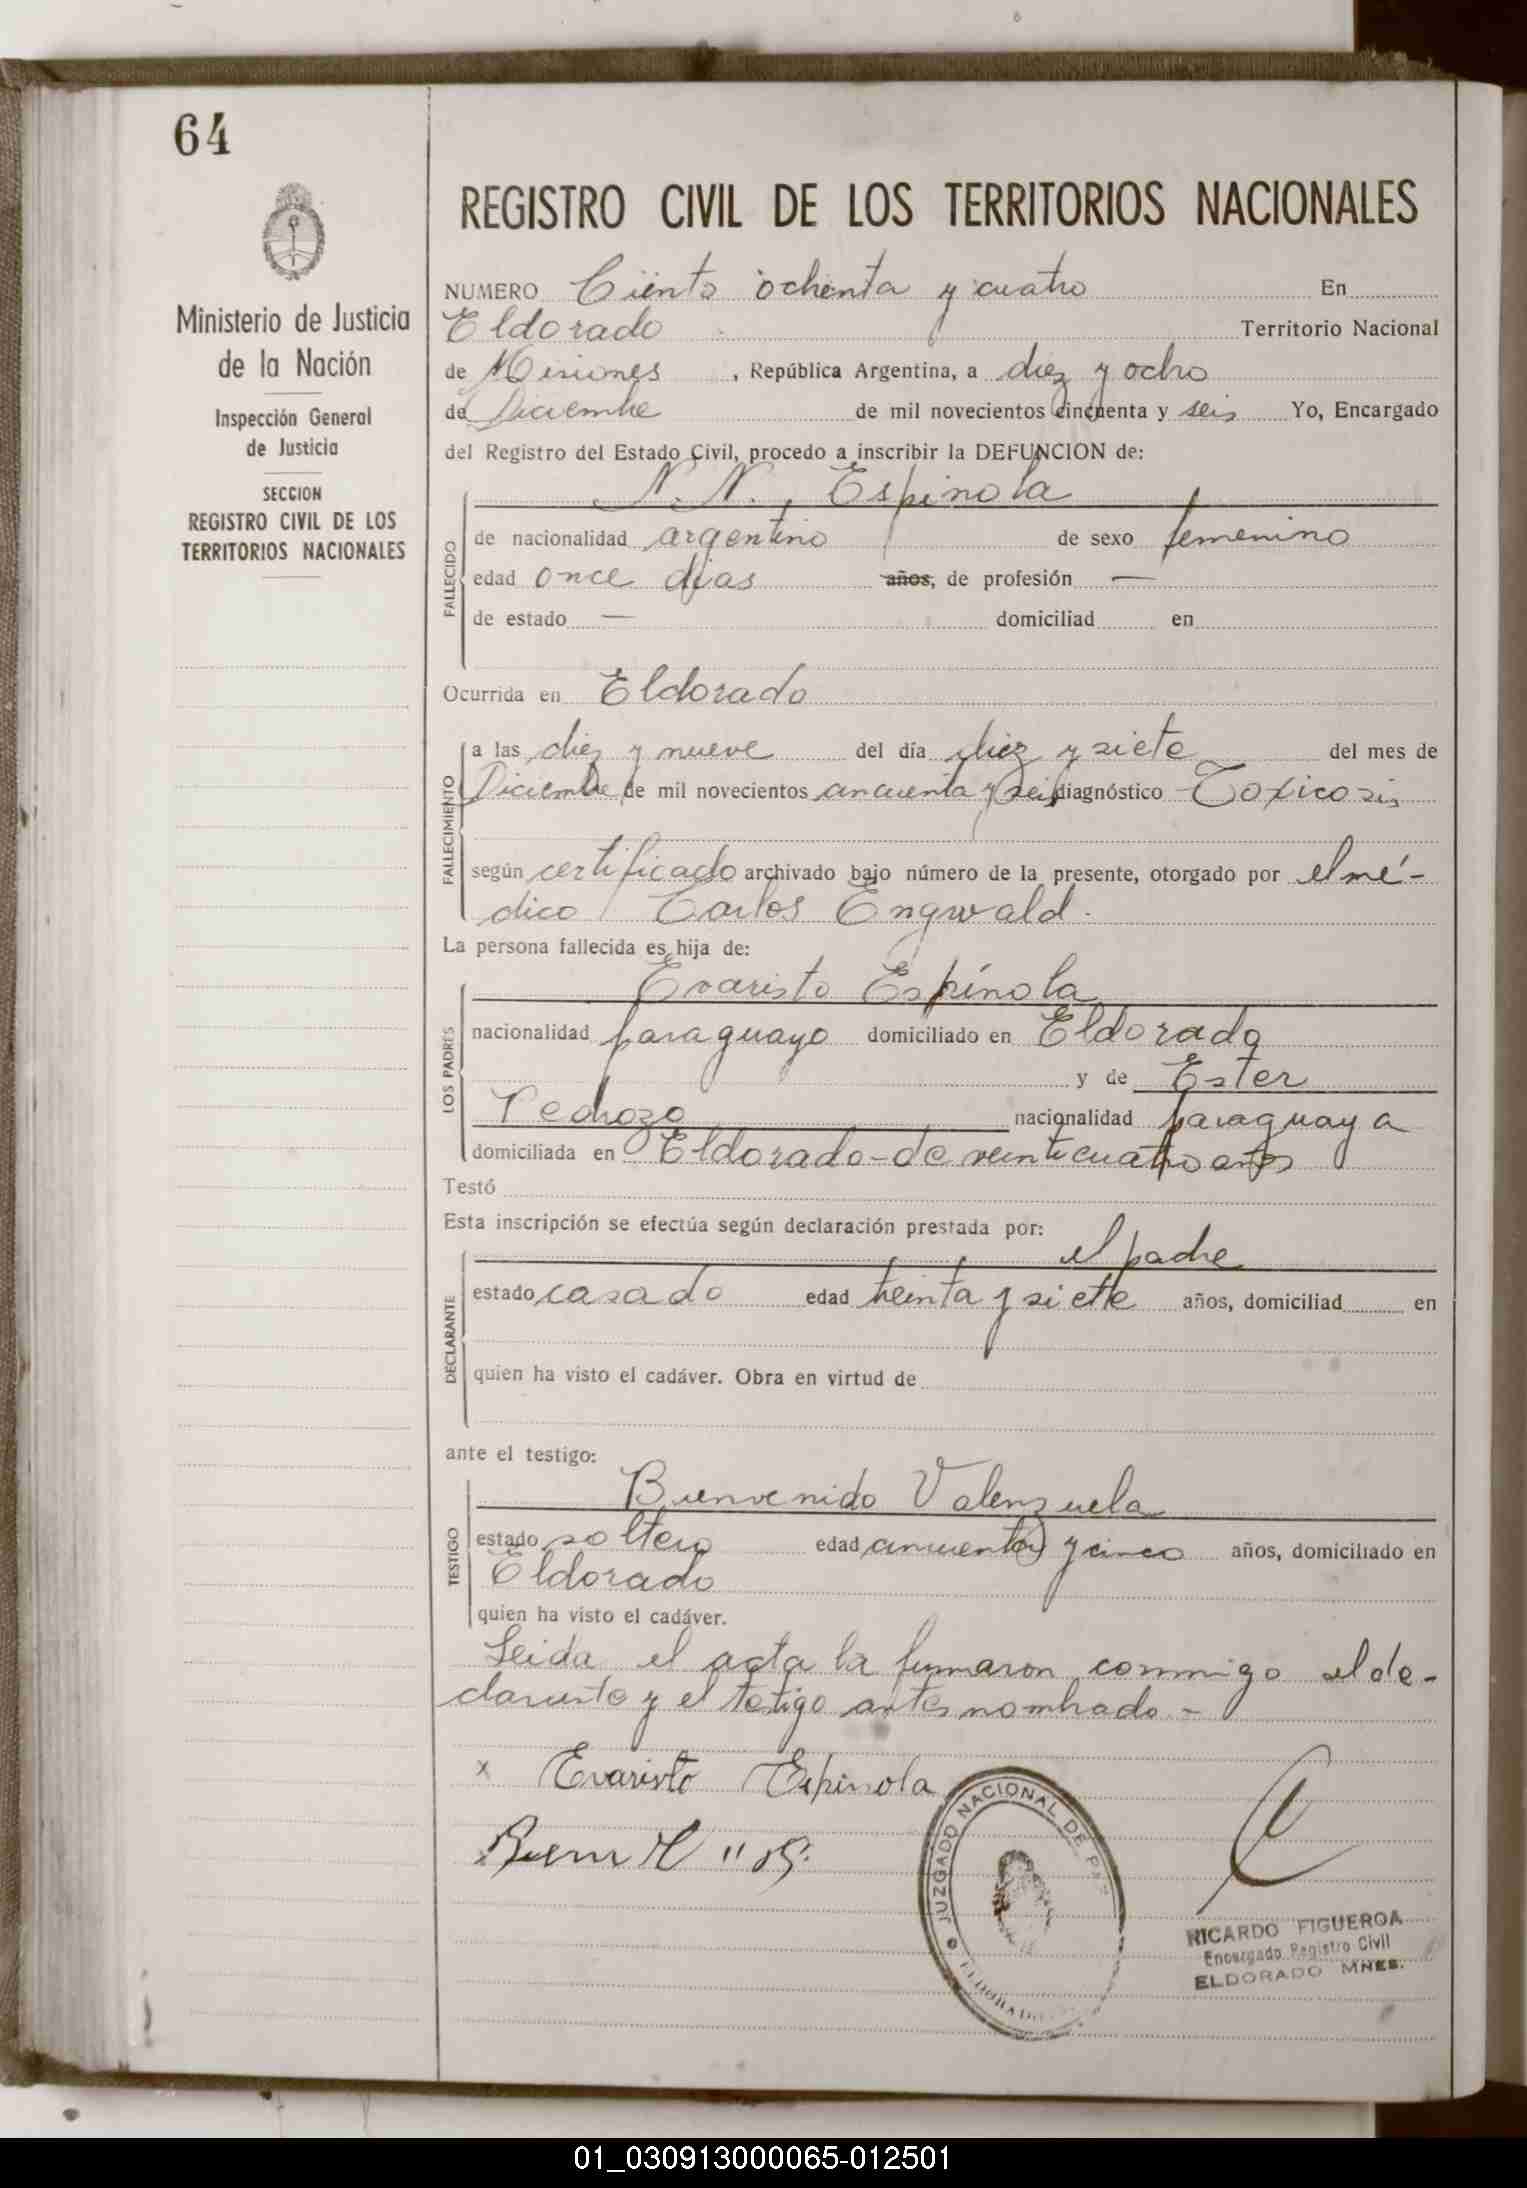 64
Ministerio de Justicia
de la Nación
Inspección General
de Justicia
SECCION
REGISTRO CIVIL DE LOS
TERRITORIOS NACIONALES
REGISTRO CIVIL DE LOS TERRITORIOS NACIONALES
NUMERO Ciento ochenta y cuatro En
Eldorado Territorio Nacional
de Misiones , República Argentina, a diez y ocho
de Diciembre de mil novecientos cincuenta y seis Yo, Encargado
del Registro del Estado Civil, procedo a inscribir la DEFUNCION de:
N. N. , Espinola
FALLECIDO
de nacionalidad argentino de sexo femenino
edad once dias años, de profesión —
de estado — domiciliad en
Ocurrida en Eldorado
FALLECIMIENTO
a las diez y nueve del día diez y siete del mes de
Diciembre de mil novecientos cincuenta y seis diagnóstico Toxicosis
según certificado archivado bajo número de la presente, otorgado por el mé-
dico Carlos Engwald.
La persona fallecida es hija de:
LOS PADRES
Evaristo Espínola
nacionalidad paraguayo domiciliado en Eldorado
y de Ester
Pedrozo nacionalidad paraguaya
domiciliada en Eldorado - de veinticuatro años
Testó
Esta inscripción se efectúa según declaración prestada por:
el padre
DECLARANTE
estado casado edad treinta y siete años, domiciliad en
quien ha visto el cadáver. Obra en virtud de
ante el testigo:
TESTIGO
Bienvenido Valenzuela
estado soltero edad cincuenta y cinco años, domiciliado en
Eldorado
quien ha visto el cadáver.
Leida el acta la firmaron conmigo el de-
clarante y el testigo antes nombrado -
x Evaristo Espinola
JUZGADO NACIONAL DE PAZ
ELDORADO
RICARDO FIGUEROA
Encargado Registro Civil
ELDORADO MNES.
01_030913000065-012501